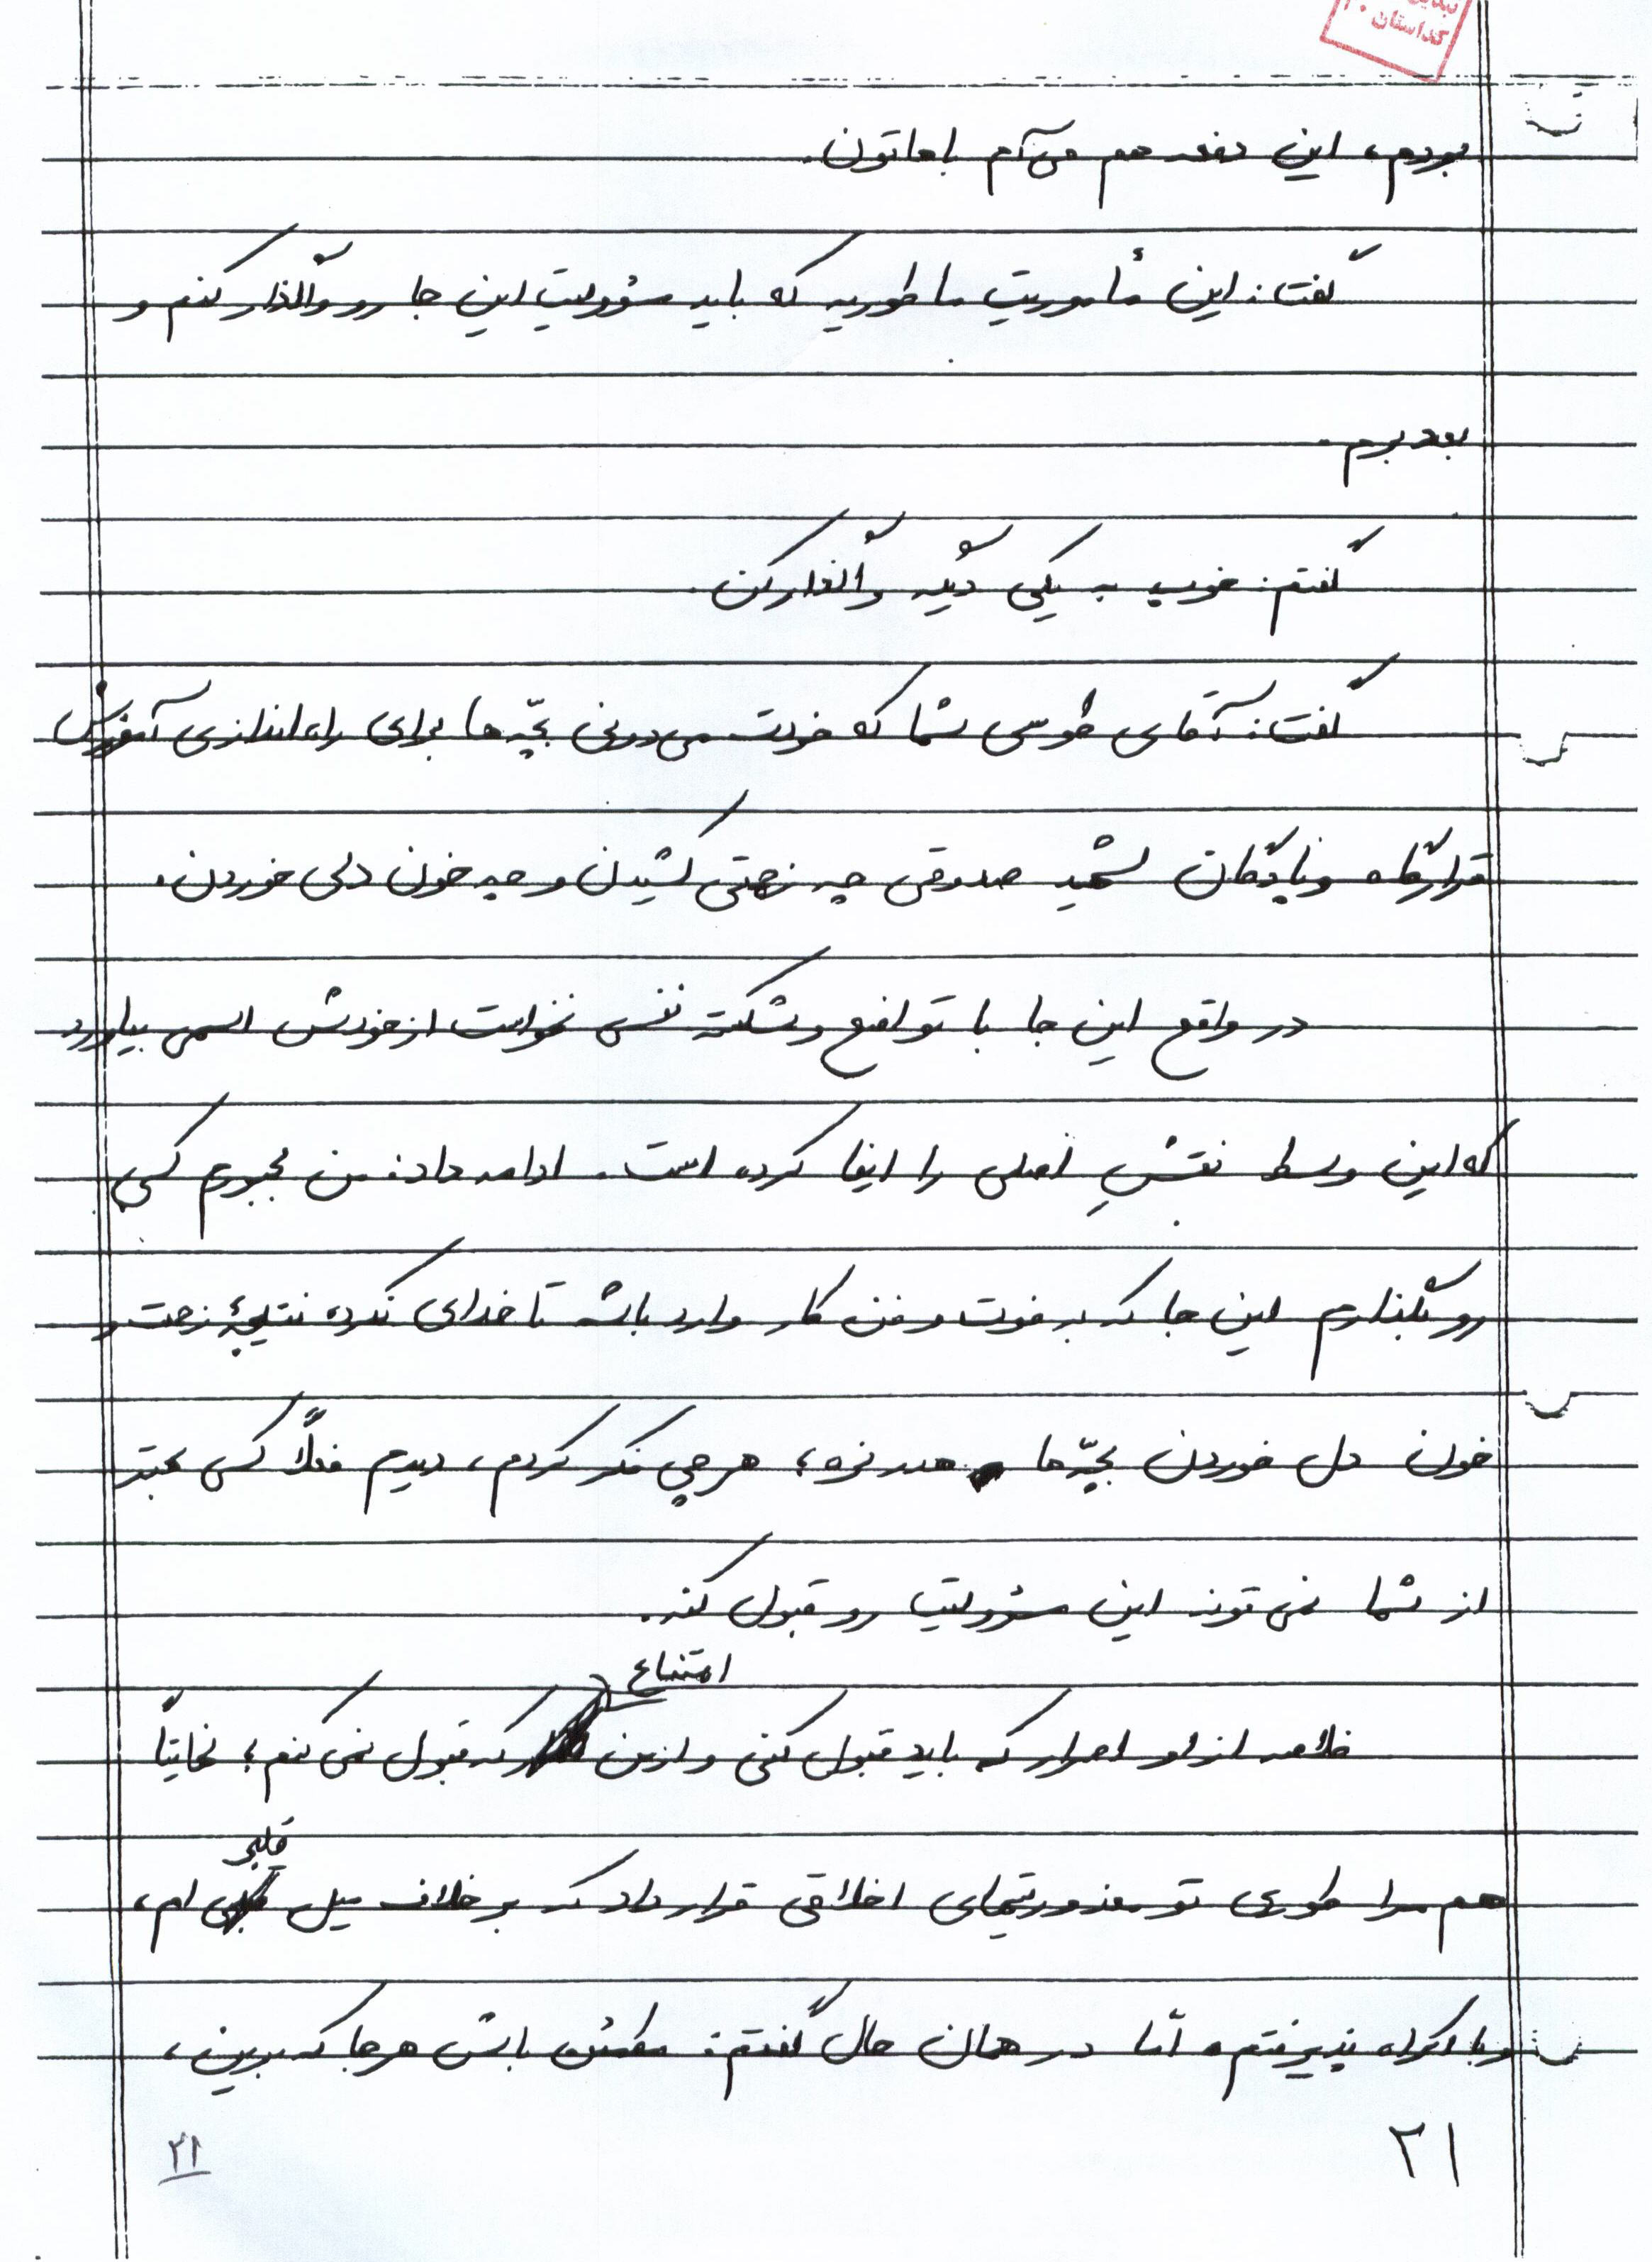 بودم، این دفعه هم می‌آم باهاتون.
گفت: این مأموریت ما طوریه که باید مسؤولیت این جا رو واگذار کنم و
بعد برم.
گفتم: خوب به یکی دیگه واگذار کن.
گفت: آقای طوسی شما که خودت می‌دونی بچّه‌ها برای راه‌اندازی آموزش
قرارگاه و پادگان شهید صدوقی چه زحمتی کشیدن و چه خون دلی خوردن.
در واقع این جا با تواضع و شکسته نفسی نخواست از خودش اسمی بیاورد
که این وسط نقشِ اصلی را ایفا کرده است. ادامه داد: من مجبورم کسی
رو بگذارم این جا که به فوت و فن کار وارد باشه تا خدای نکرده نتیجۀ زحمت و
خون دل خوردن بچّه‌ها هدر نره؛ هر چی فکر کردم، دیدم فعلاً کسی بهتر
از شما نمی‌تونه این مسؤولیت رو قبول کنه.
امتناع
خلاصه از او اصرار که باید قبول کنی و از من که قبول نمی‌کنم؛ نهایتاً
قلبی
هم مرا طوری تو معذوریتهای اخلاقی قرار داد که بر خلاف میل ام،
و با اکراه پذیرفتم. امّا در همان حال گفتم: مطمئن باش هر جا که برین،
۲۱
۲۱